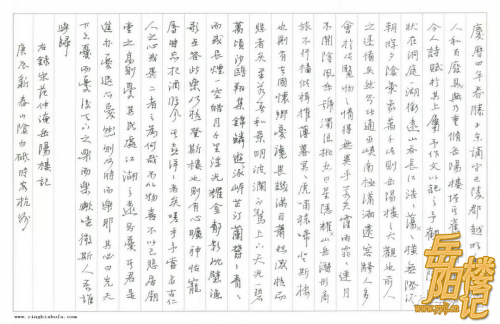 慶曆四年春滕子京謫守巴陵郡越明年政通
人和百廢具興乃重修岳陽樓增其舊制刻唐賢
今人詩賦於其上屬予作文以記之予觀夫巴陵勝
狀在洞庭一湖銜遠山吞長江浩浩蕩蕩橫無際涯
朝暉夕陰氣象萬千此則岳陽樓之大觀也前人
之述備矣然則北通巫峽南極瀟湘遷客騷人多
會於此覽物之情得無異乎若夫霪雨霏霏連月
不開陰風怒號濁浪排空日星隱耀山岳潛形商
旅不行檣傾楫摧薄暮冥冥虎嘯猿啼登斯樓
也則有去國懷鄉憂讒畏譏滿目蕭然感極而
悲者矣至若春和景明波瀾不驚上下天光一碧
萬頃沙鷗翔集錦鱗游泳岸芷汀蘭鬱鬱青青
而或長煙一空皓月千里浮光耀金靜影沉璧漁
歌互答此樂何極登斯樓也則有心曠神怡寵
辱皆忘把酒臨風其喜洋洋者矣嗟夫予嘗求古仁
人之心或異二者之為何哉不以物喜不以己悲居廟
堂之高則憂其民處江湖之遠則憂其君是
進亦憂退亦憂然則何時而樂耶其必曰先天
下之憂而憂後天下之樂而樂歟噫微斯人吾誰
與歸
右錄宋范仲淹岳陽樓記
庚辰新春山陰白砥時客杭州
岳阳楼记
www.yingbishufa.com